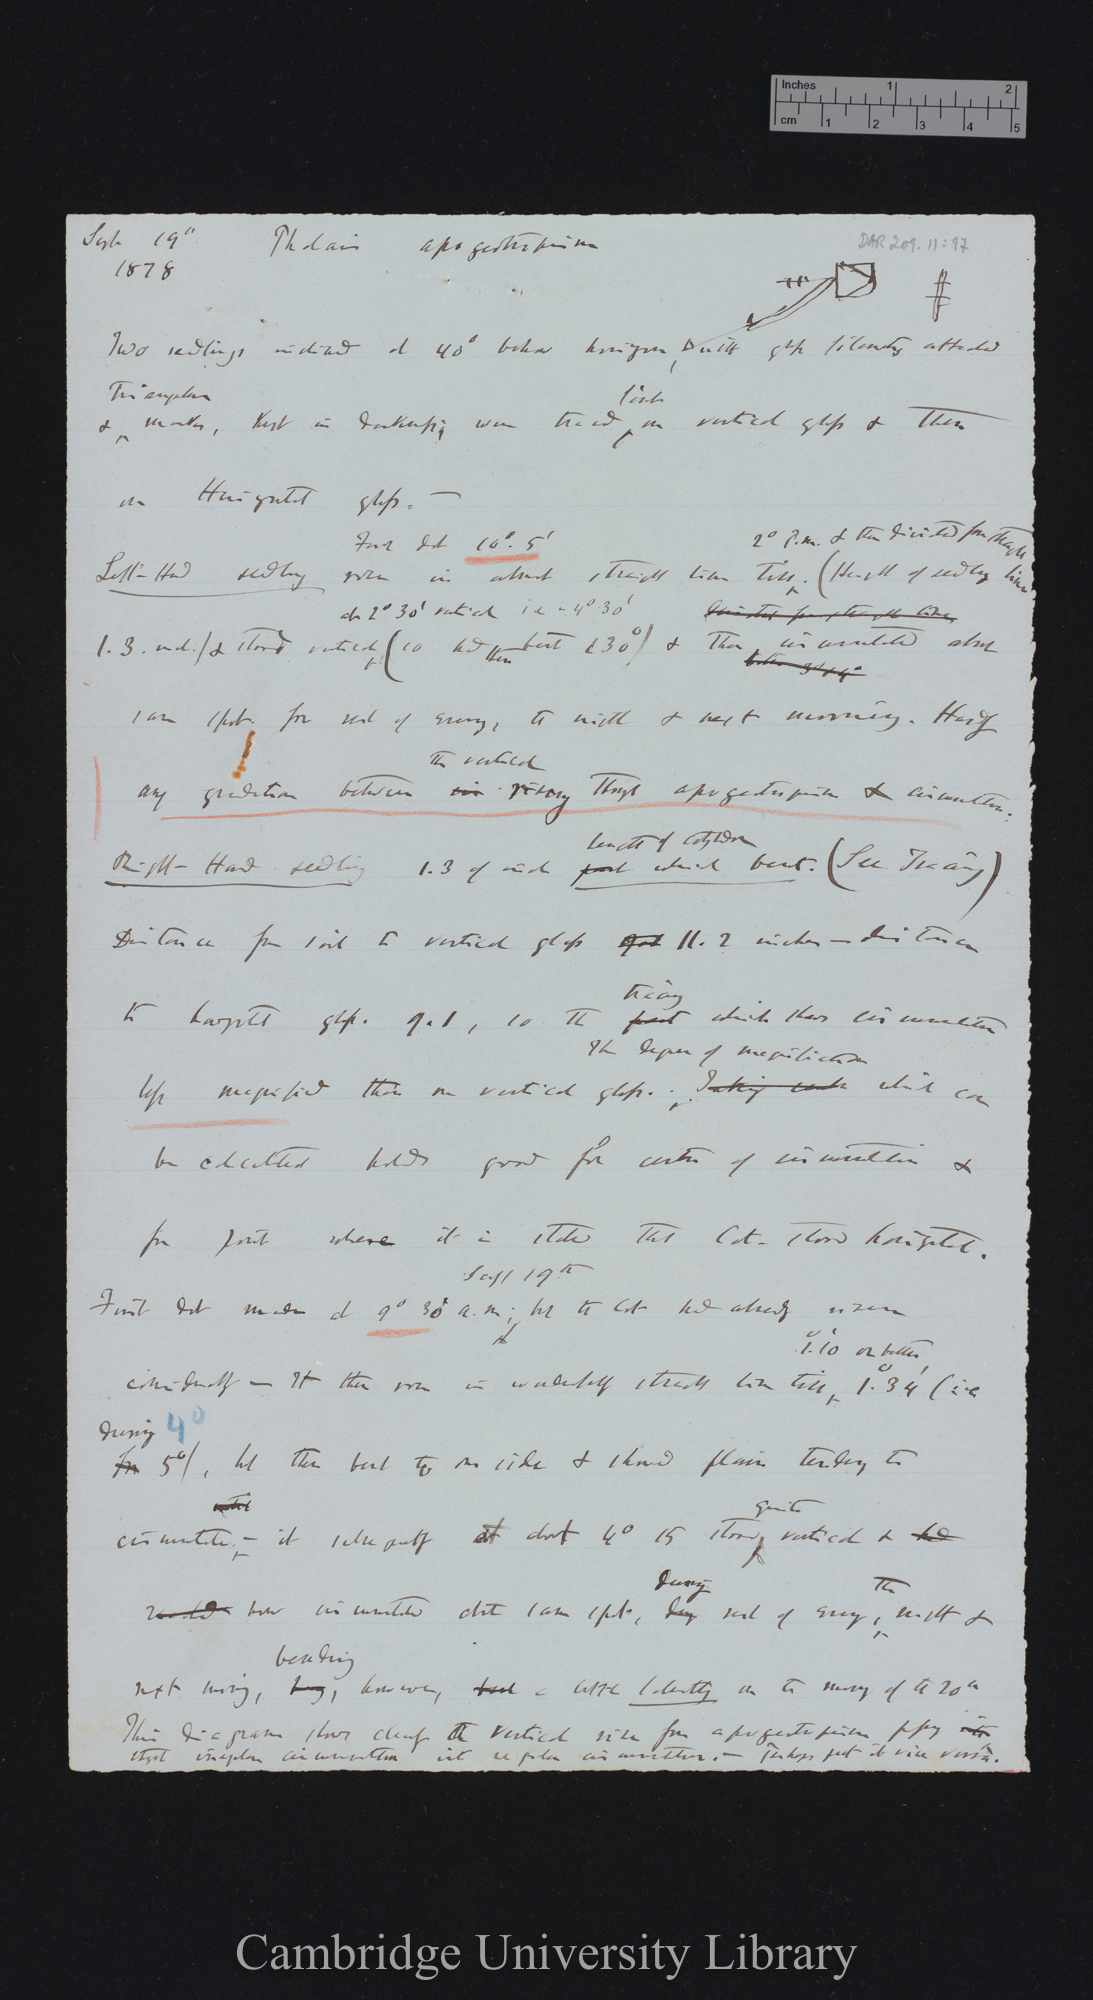 Inches 1 2
cm 1 2 3 4 5
Sept 19th Phalaris apogeotropism
1878
DAR 209.11:97
Two seedlings inclined at 40° below horizon, with glass filaments attached
Triangular first
& marks, kept in darkness, were traced on vertical glass & then
on Horizontal glass. —
First dot 10°. 5' 2° P.m. & then deviated from straight line
Left-Hand seedling rose in almost straight line till (Height of seedling
at 2° 30' vertical i.e. 4° 30' deviated from straight line
1.3. inch) & stood vertical (so had then bent 130°) & then circumnutated about
same spot for rest of evening, the night & next morning. Hardly
the vertical
any gradation between rising through apogeotropism & circumnutation.
length of cotyledon
Right-Hand seedling 1.3 of inch part which bent. (See Tracing)
Distance from soil to vertical glass 11.2 inches — distance
tracing
to horizontal glass. 9.1, so the part which shows circumnutation
The degree of magnification
less magnified than on vertical glass. Taking which can
be calculated holds good for centre of circumnutation &
for point where it is stated that Cot. stood horizontal.
Sept 19th
First dot made at 9° 30' a.m; but the Cot had already risen
1°.10' or better
considerably — It then rose in wonderfully straight line till 1°.34' (i.e
during 4°
for 5°), but then bent to one side & showed plain tendency to
until quite
circumnutate. — it subsequently at about 4° 15 stood vertical & had
during the
now circumnutated about same spot, rest of evening, night &
bending
next morning, however, a little laterally on the morning of the 20th
This diagram shows clearly the vertical rise from apogeotropism passing into
irregular circumnutation into regular circumnutation. — Perhaps put it vice versâ.
Cambridge University Library